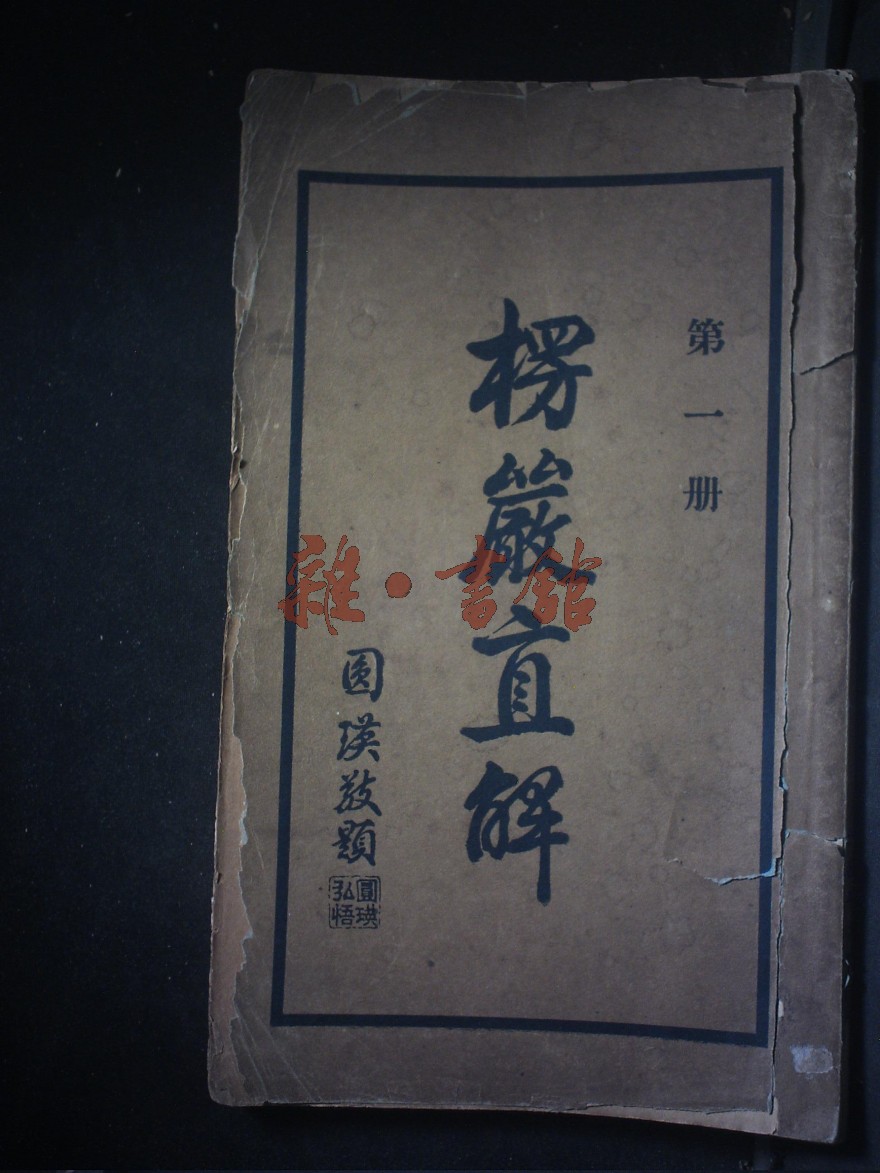 第一册
楞嚴直解
圓瑛敬題
圓瑛
弘悟
雜·書館